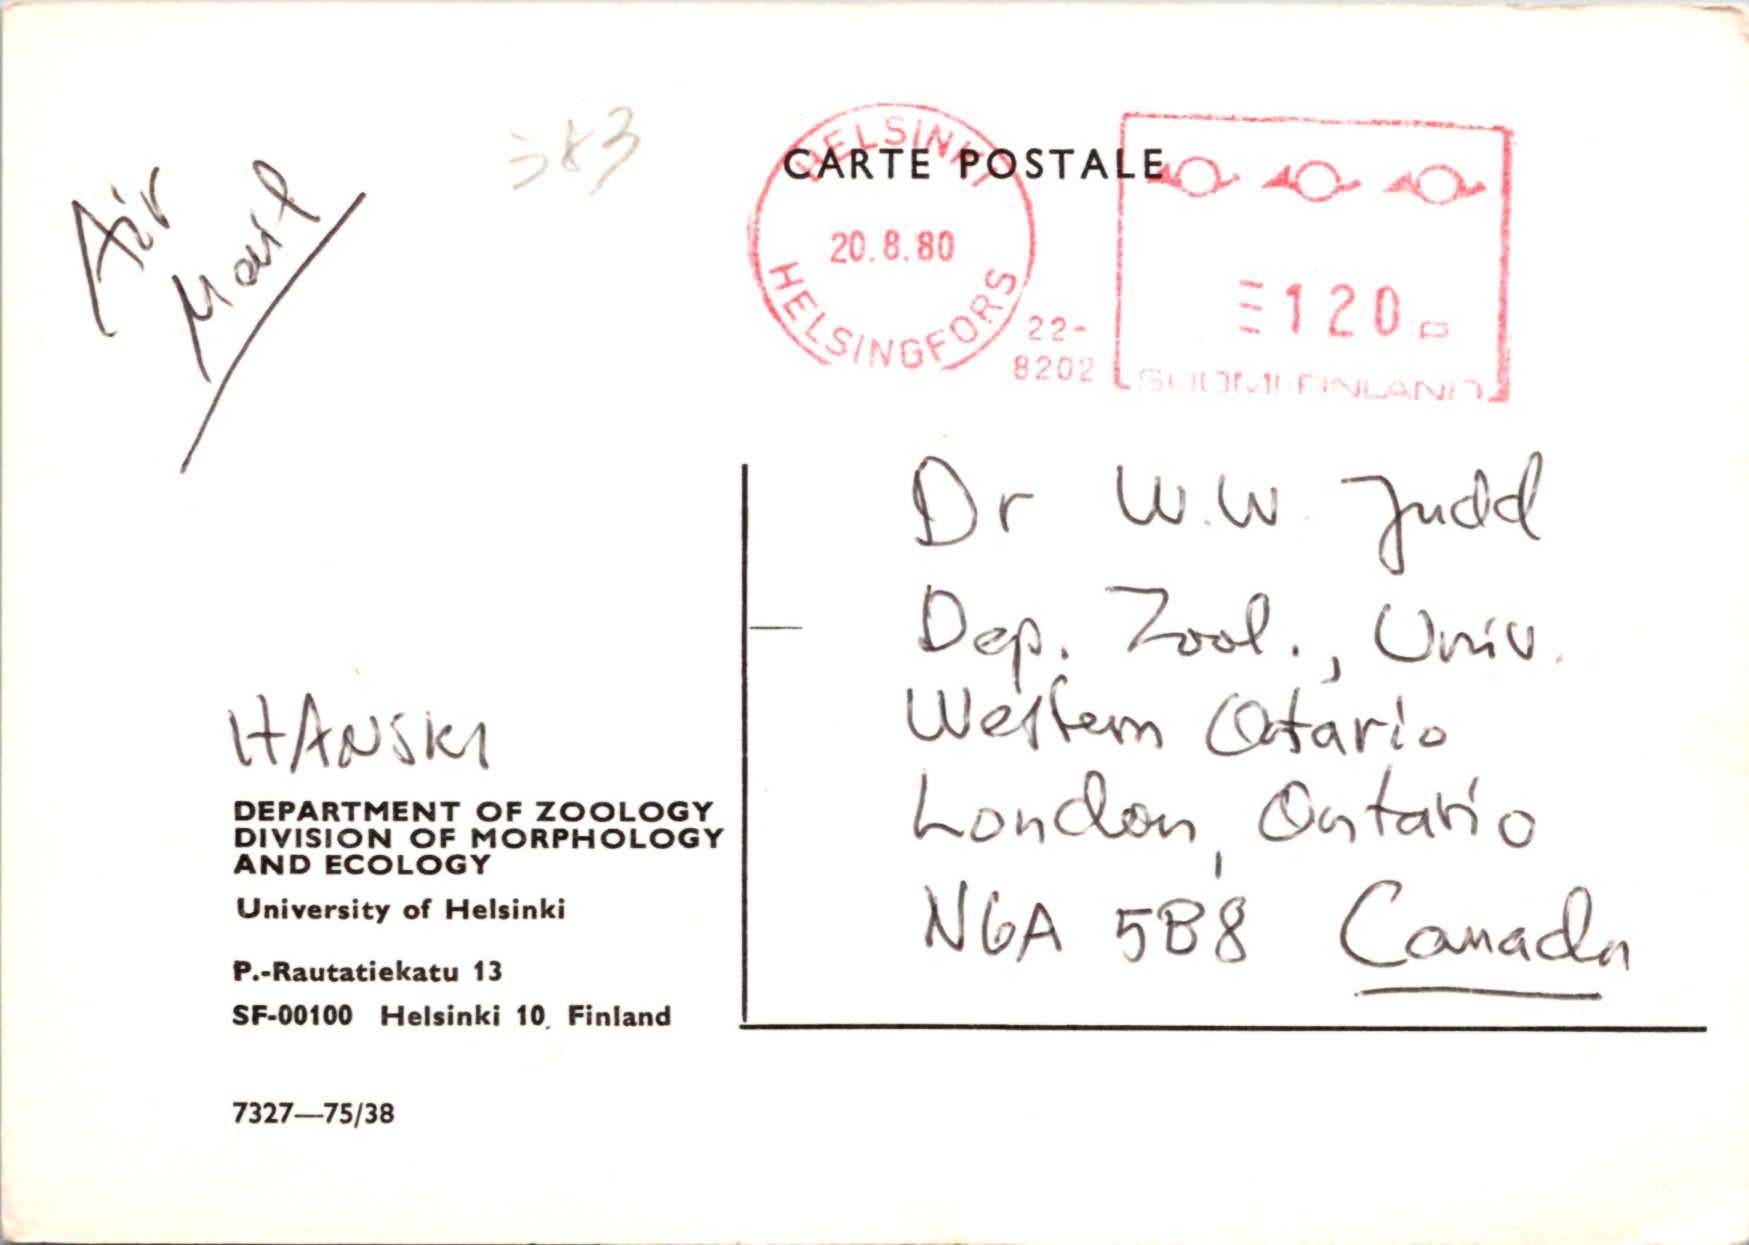 Air
Mail
383
CARTE POSTALE
HELSINKI
20.8.80
HELSINGFORS
22-
8202
120 P
SUOMI-FINLAND
Dr W.W. Judd
Dep. Zool., Univ.
Western Ontario
London, Ontario
N6A 5B8 Canada
HANSKI
DEPARTMENT OF ZOOLOGY
DIVISION OF MORPHOLOGY
AND ECOLOGY
University of Helsinki
P.-Rautatiekatu 13
SF-00100 Helsinki 10, Finland
7327—75/38